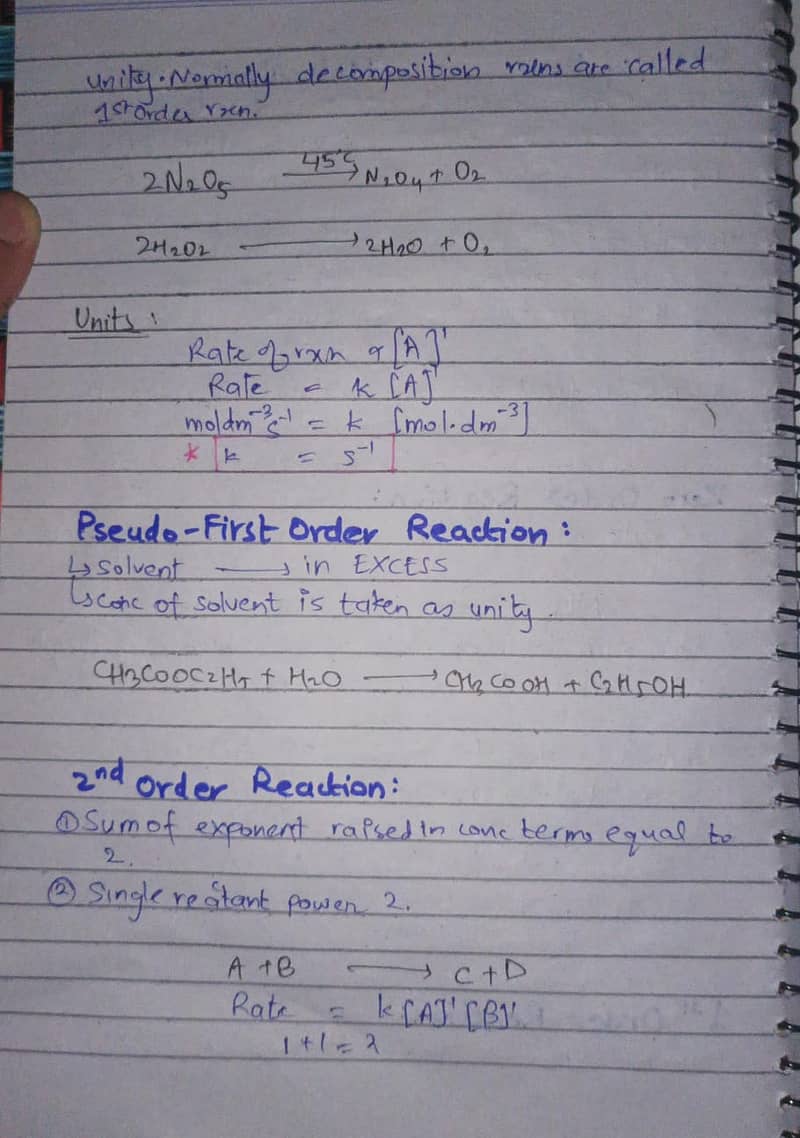 unity. Normally decomposition rxns are called
1st order rxn.
2N₂O₅ —45°C→ N₂O₄ + O₂
2H₂O₂ ⟶ 2H₂O + O₂
Units :
Rate of rxn α [A]¹
Rate = k [A]¹
moldm⁻³s⁻¹ = k [mol.dm⁻³]
* k = s⁻¹
Pseudo-First Order Reaction :
↳ solvent ⟶ in EXCESS
↳ conc of solvent is taken as unity.
CH₃COOC₂H₅ + H₂O ⟶ CH₃COOH + C₂H₅OH
2nd Order Reaction :
① Sum of exponent raised in conc terms equal to
2.
② Single reatant power 2.
A + B ⟶ C + D
Rate = k [A]¹ [B]¹
1 + 1 = 2